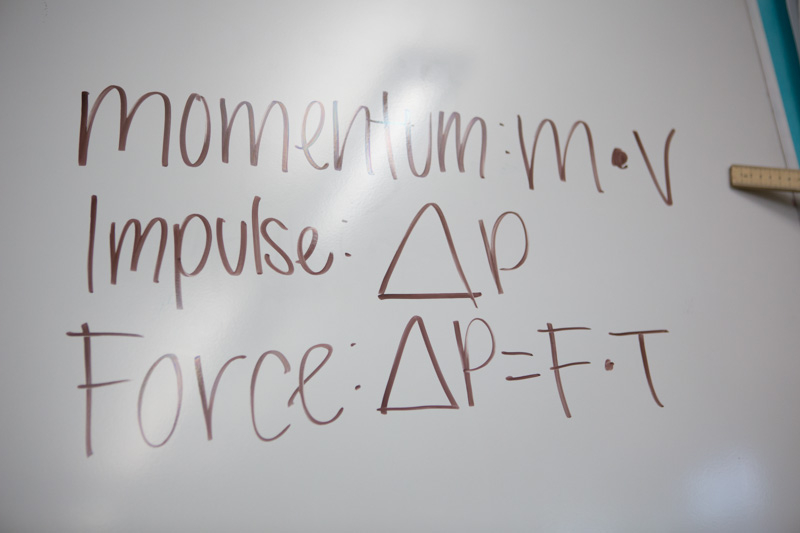 momentum: m·v
Impulse: Δp
Force: Δp=F·T